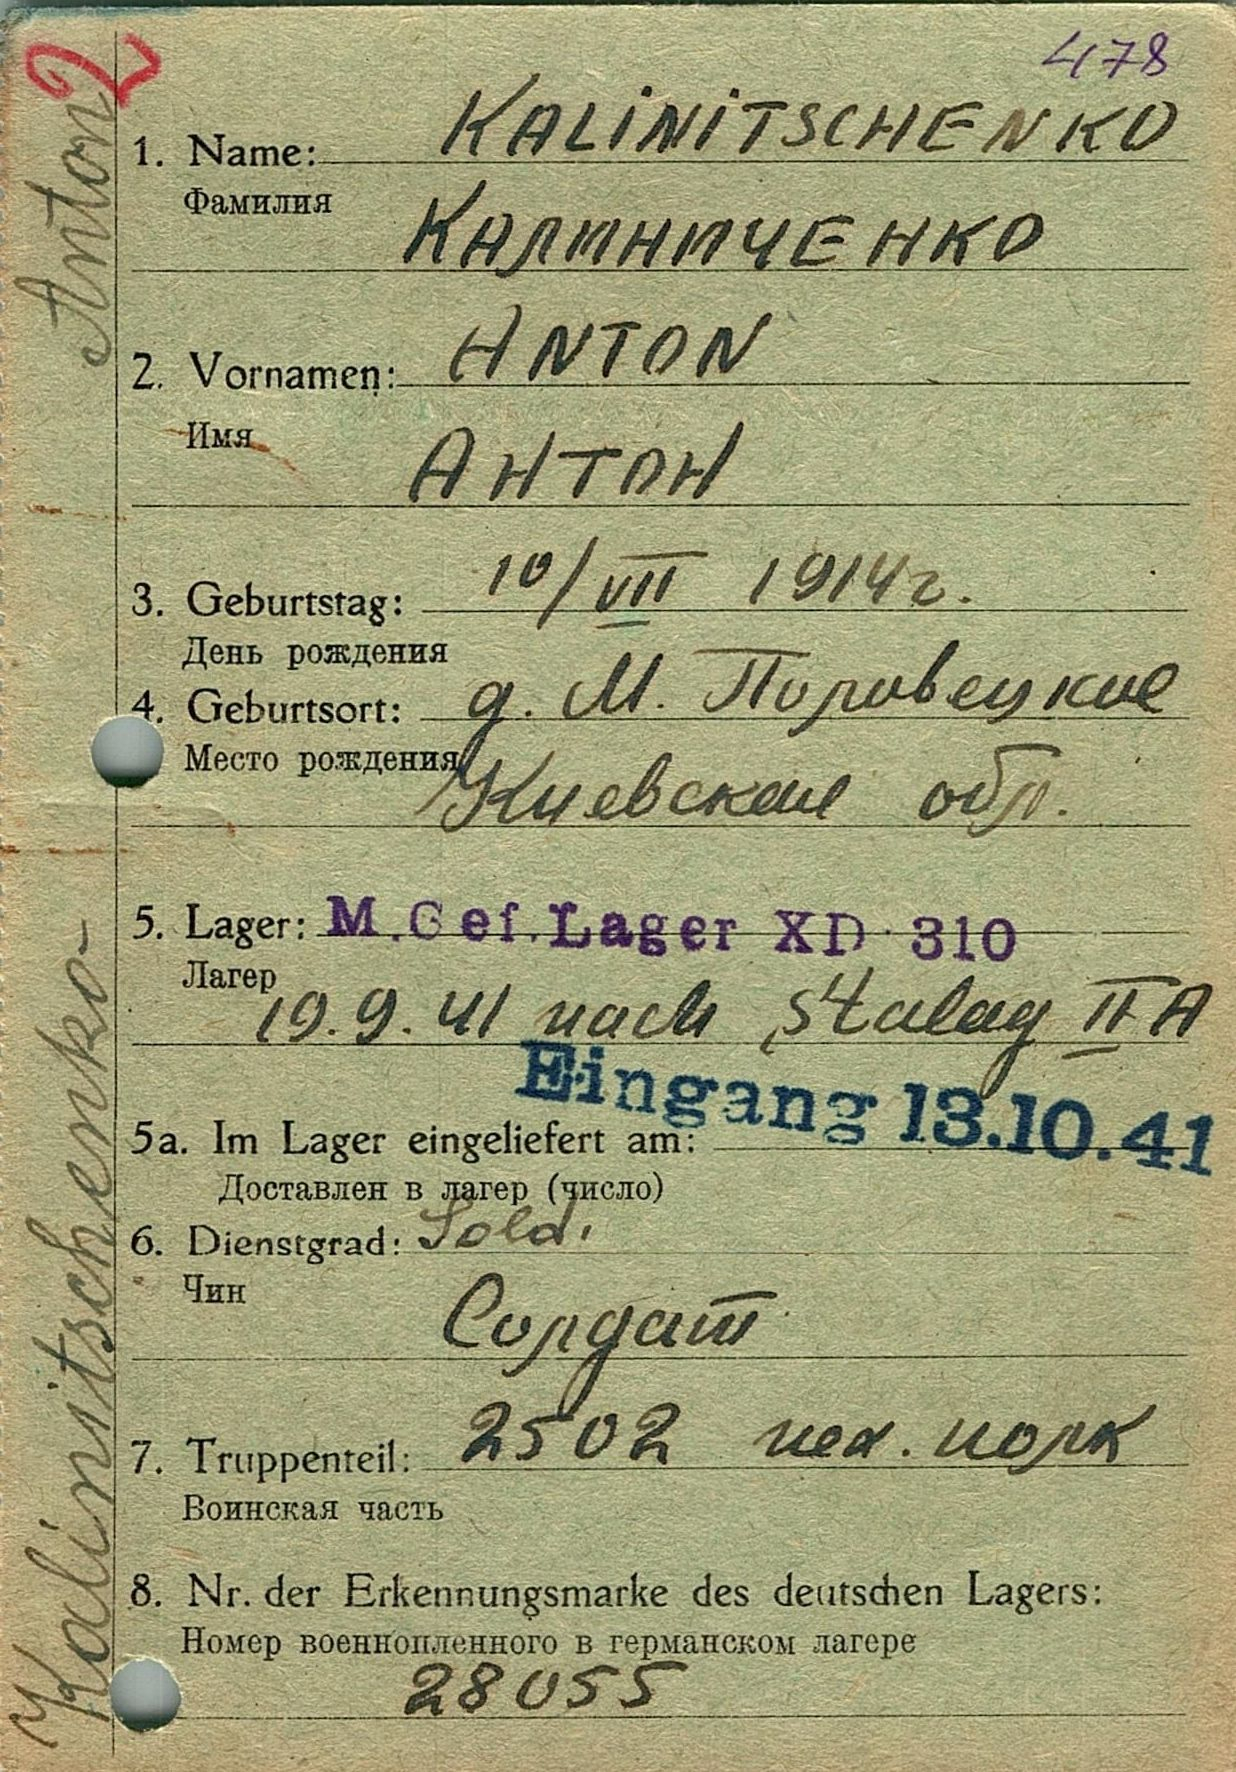 2
478
1. Name: KALINITSCHENKO
Фамилия
КАЛИНИЧЕНКО
2. Vornamen: ANTON
Имя
АНТОН
3. Geburtstag: 10/VII 1914 г.
День рождения
4. Geburtsort: д. М. Половецкое
Место рождения
Киевская обл.
5. Lager: M.Gef.Lager XD 310
Лагер
19.9.41 nach Stalag II A
Eingang 13.10.41
5a. Im Lager eingeliefert am:
Доставлен в лагер (число)
6. Dienstgrad: Sold.
Чин
Солдат
7. Truppenteil: 2502 полк
Воинская часть
8. Nr. der Erkennungsmarke des deutschen Lagers:
Номер военнопленного в германском лагере
28055
Kalinitschenko Anton